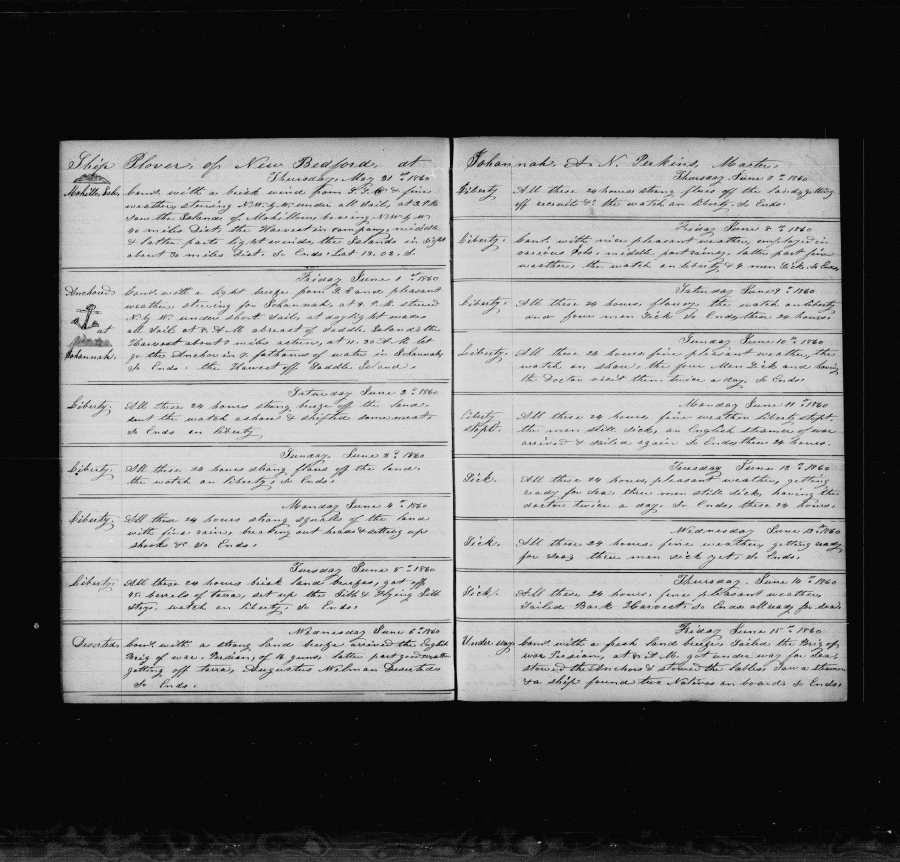 Ship Plover, of New Bedford, at
Thursday, May 31st 1860
Mohilla, Isds. Comd. with a brick wind from S. & fine
weather, steering N.W. by W. under all Sail, at 2 P.M.
saw the Islands of Mohilla bearing N.W. by W.
40 miles Dist. the Harvest in company, middle
& latter parts light winds, the Islands in sight
about 30 miles Dist. So Ends. Lat 13.02. S.
Friday June 1st 1860
Anchored at Johannah. Comd. with a light breeze from S.E. and pleasant
weather, steering for Johannah, at 8 P.M. steered
N. by W. under short Sail, at daylight made
all Sail at 8 A.M abreast of Saddle Island, the
Harvest about 7 miles astern, at 11.30 A.M. let
go the Anchor in 7 fathoms of water in Johannah,
So Ends. the Harvest off Saddle Island.
Saturday June 2d 1860
Liberty; All these 24 hours strong breeze off the land.
sent the watch ashore & shifted some meat,
So Ends on liberty
Sunday, June 3d 1860
Liberty; All these 24 hours strong flaws off the land.
the watch on liberty, So Ends.
Monday June 4th 1860
Liberty; All these 24 hours strong squalls off the land
with fine rain, breaking out heads & setting up
shooks &c So Ends.
Tuesday June 5th 1860
Liberty; All these 24 hours brick land breezes, got off
barrels of tarra, set up the Jibb & Flying Jibb
stays, watch on liberty, So Ends.
Wednesday June 6th 1860
Deserted. Comd. with a strong land breeze arrived the English
Brig of war, Persian, of 16 guns, latter part good weather
getting off tarra, Augustus Deserted
So Ends.
Johannah. A. N. Perkins, Master,
Thursday June 7th 1860
Liberty All these 24 hours strong flaws off the land, getting
off recruits &c the watch on liberty, So Ends.
Friday June 8th 1860
Liberty; Comd. with nice pleasant weather, employed in
various Jobs, middle part rainy, latter part fine
weather, the watch on liberty & 4 men Sick, So Ends.
Saturday June 9th 1860
Liberty; All these 24 hours, flawy, the watch on liberty
and four men Sick So Ends, these 24 hours.
Sunday June 10th 1860
Liberty; All these 24 hours, fine pleasant weather, the
watch on shore, the four Men Sick and having
the Doctor visit them twice a day, So Ends.
Monday June 11th 1860
Liberty stopt. All these 24 hours, fine weather liberty stopt,
the men still Sick, an English steamer of war
arrived & sailed again So Ends, these 24 hours.
Tuesday June 12th 1860
Sick. All these 24 hours, pleasant weather, getting
ready for sea, three men still Sick, having the
doctor twice a day, So Ends, these 24 hours.
Wednesday June 13th 1860
Sick. All these 24 hours, fine weather, getting ready
for Sea, three men sick yet, So Ends.
Thursday, June 14th 1860
Sick. All these 24 hours, fine pleasant weather,
Sailed Bark Harvest, So Ends all ready for sea.
Friday June 15th 1860
Under way; Comd. with a fresh land breeze, Sailed the Brig of
war Persian, at A.M. got under way for Sea,
stowed the Anchors & stowed the Cables. Saw a steamer
& a ship found two Natives on board, So Ends.